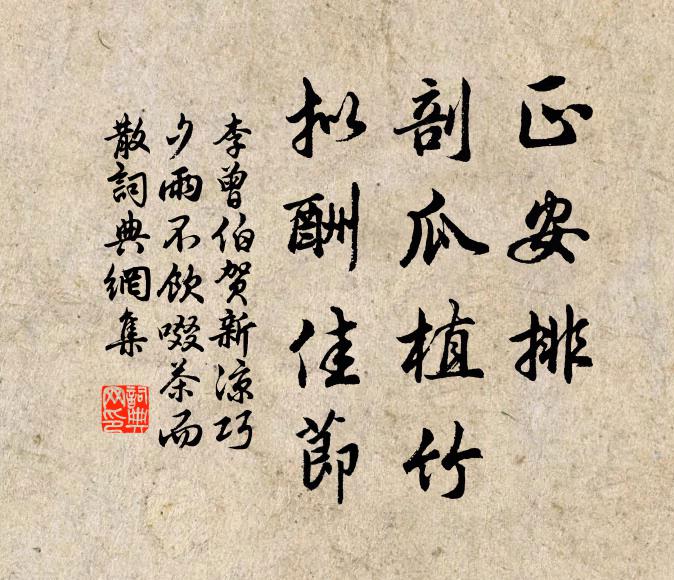 正安排
剖瓜植竹
拟酬佳節
李曾伯贺新凉巧
夕雨不飲啜茶而
散詞典網集
詞典
网印